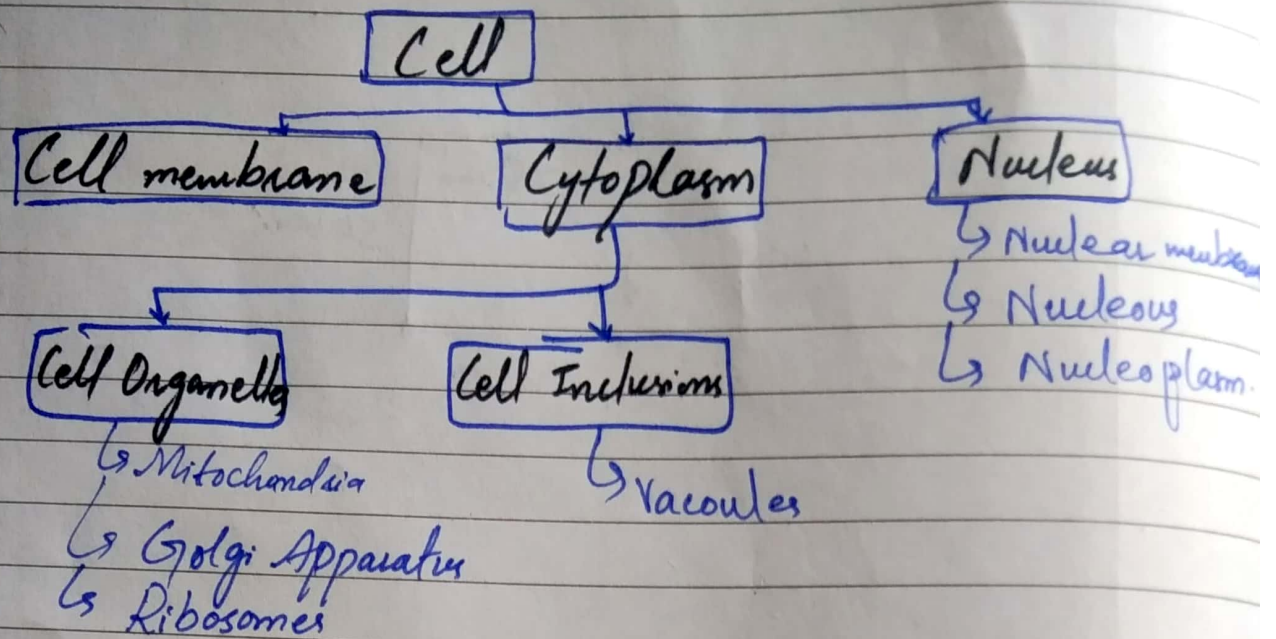 Cell
Cell membrane
Cytoplasm
Nucleus
Nuclear membrane
Nucleous
Nucleoplasm.
Cell Organells
Cell Inclusions
Mitochandria
Golgi Apparatus
Ribosomes
Vacoules